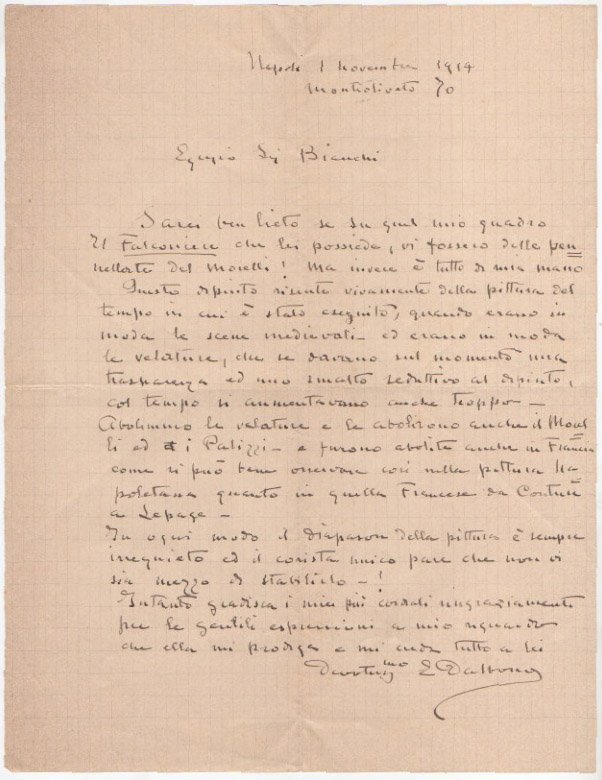 Napoli 1 novembre 1914
Montoliveto 70
Egregio Sig Bianchi
Sarei ben lieto se su quel mio quadro
Il Falconiere che lei possiede, vi fossero delle pen
nellate del Morelli! Ma invece è tutto di mia mano
Questo dipinto risente vivamente della pittura del
tempo in cui è stato eseguito, quando erano in
moda le scene medievali - ed erano in moda
le velature, che se davano sul momento una
trasparenza ed uno smalto seduttivo al dipinto,
col tempo si aumentavano anche troppo -
Abolimmo le velature e le abolirono anche il Morel
li ed i Palizzi - e furono abolite anche in Francia
come si può bene osservare così nella pittura Na
poletana quanto in quella Francese da Couture
a Lepage -
In ogni modo il diapason della pittura è sempre
irrequieto ed il corista unico pare che non vi
sia mezzo di stabilirlo - !
Intanto gradisca i miei più cordiali ringraziamenti
per le gentili espressioni a mio riguardo
che ella mi prodiga e mi creda tutto a lei
Devotissmo E Dalbono